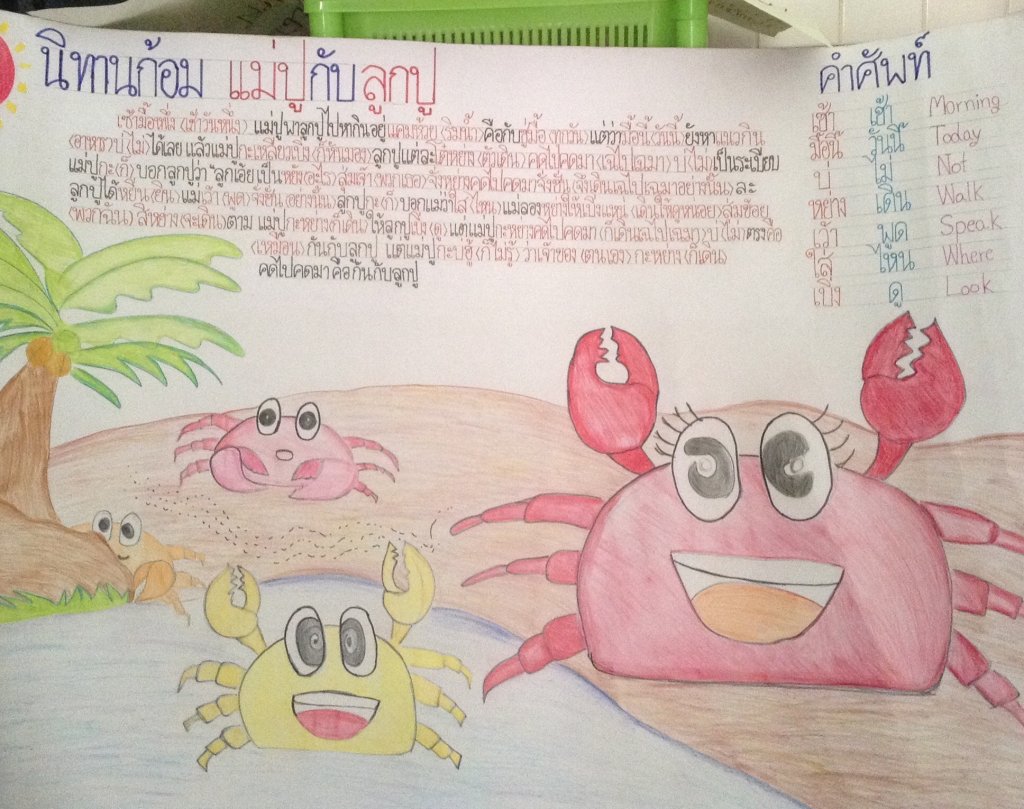 นิทานก้อม แม่ปูกับลูกปู
เช้ามื้อหนึ่ง (เช้าวันหนึ่ง) แม่ปูพาลูกปูไปหากินอยู่แคมห้วย (ริมน้ำ) คือกับซู่มื้อ (ทุกวัน) แต่ว่ามื้อนี้ (วันนี้) ยังหาแนวกิน
(อาหาร) บ่ (ไม่) ได้เลย แล้วแม่ปูกะเหลียวเบิ่ง (ก็หันมอง) ลูกปูแต่ละโตหย่าง (ตัวเดิน) คดไปคดมา (เฉไปเฉมา) บ่ (ไม่) เป็นระเบียบ
แม่ปูกะ (ก็) บอกลูกปูว่า "ลูกเอ้ยเป็นหยัง (อะไร) สูเจ้า (พวกเธอ) จั่งหย่างคดไปคดมาจั่งซั่น (จึงเดินเฉไปเฉมาอย่างนั้น) ละ
ลูกปูได้หยิน (ยิน) แม่เว้า (พูด) จั่งซั่น (อย่างนั้น) ลูกปูกะ (ก็) บอกแม่ว่าใส (ไหน) แม่ลองหย่างให้เบิ่งแหน่ (เดินให้ดูหน่อย) สุมข้อย
(พวกฉัน) สิหย่าง (จะเดิน) ตาม แม่ปูกะหย่าง (ก็เดิน) ให้ลูกปูเบิ่ง (ดู) แต่แม่ปูกะหย่างคดไปคดมา (ก็เดินเฉไปเฉมา) บ่ (ไม่) ตรงคือ
(เหมือน) กันกับลูกปู แต่แม่ปูกะบ่ฮู้ (ก็ไม่รู้) ว่าเจ้าของ (ตนเอง) กะหย่าง (ก็เดิน)
คดไปคดมา คือกันกับลูกปู
คำศัพท์
เช้า เช้า Morning
มื้อนี้ วันนี้ Today
บ่ ไม่ Not
หย่าง เดิน Walk
เว้า พูด Speak
ใส ไหน Where
เบิ่ง ดู Look